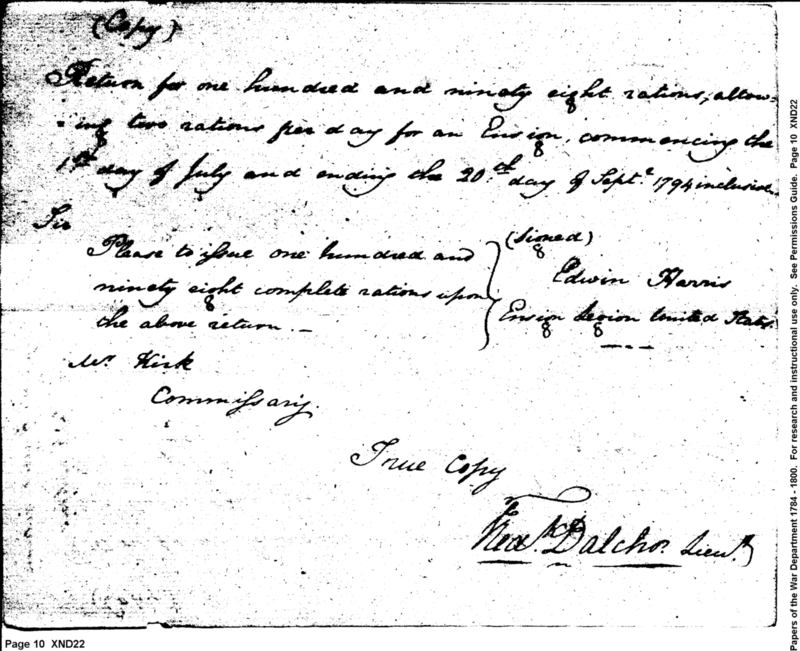 (Copy)
Return for one hundred and ninety eight rations, allow-
-ing two rations per day for an Ensign, commencing the
1st day of July and ending the 20th day of Sept.r 1794 inclusive.
Sir
Please to issue one hundred and
ninety eight complete rations upon
the above return. —
(signed)
Edwin Harris
Ensign Legion United States.
Mr Kirk
Commissary.
True Copy
Fred.k Dalcho. Lieut.
Page 10 XND22
Papers of the War Department 1784 - 1800. For research and instructional use only. See Permissions Guide. Page 10 XND22